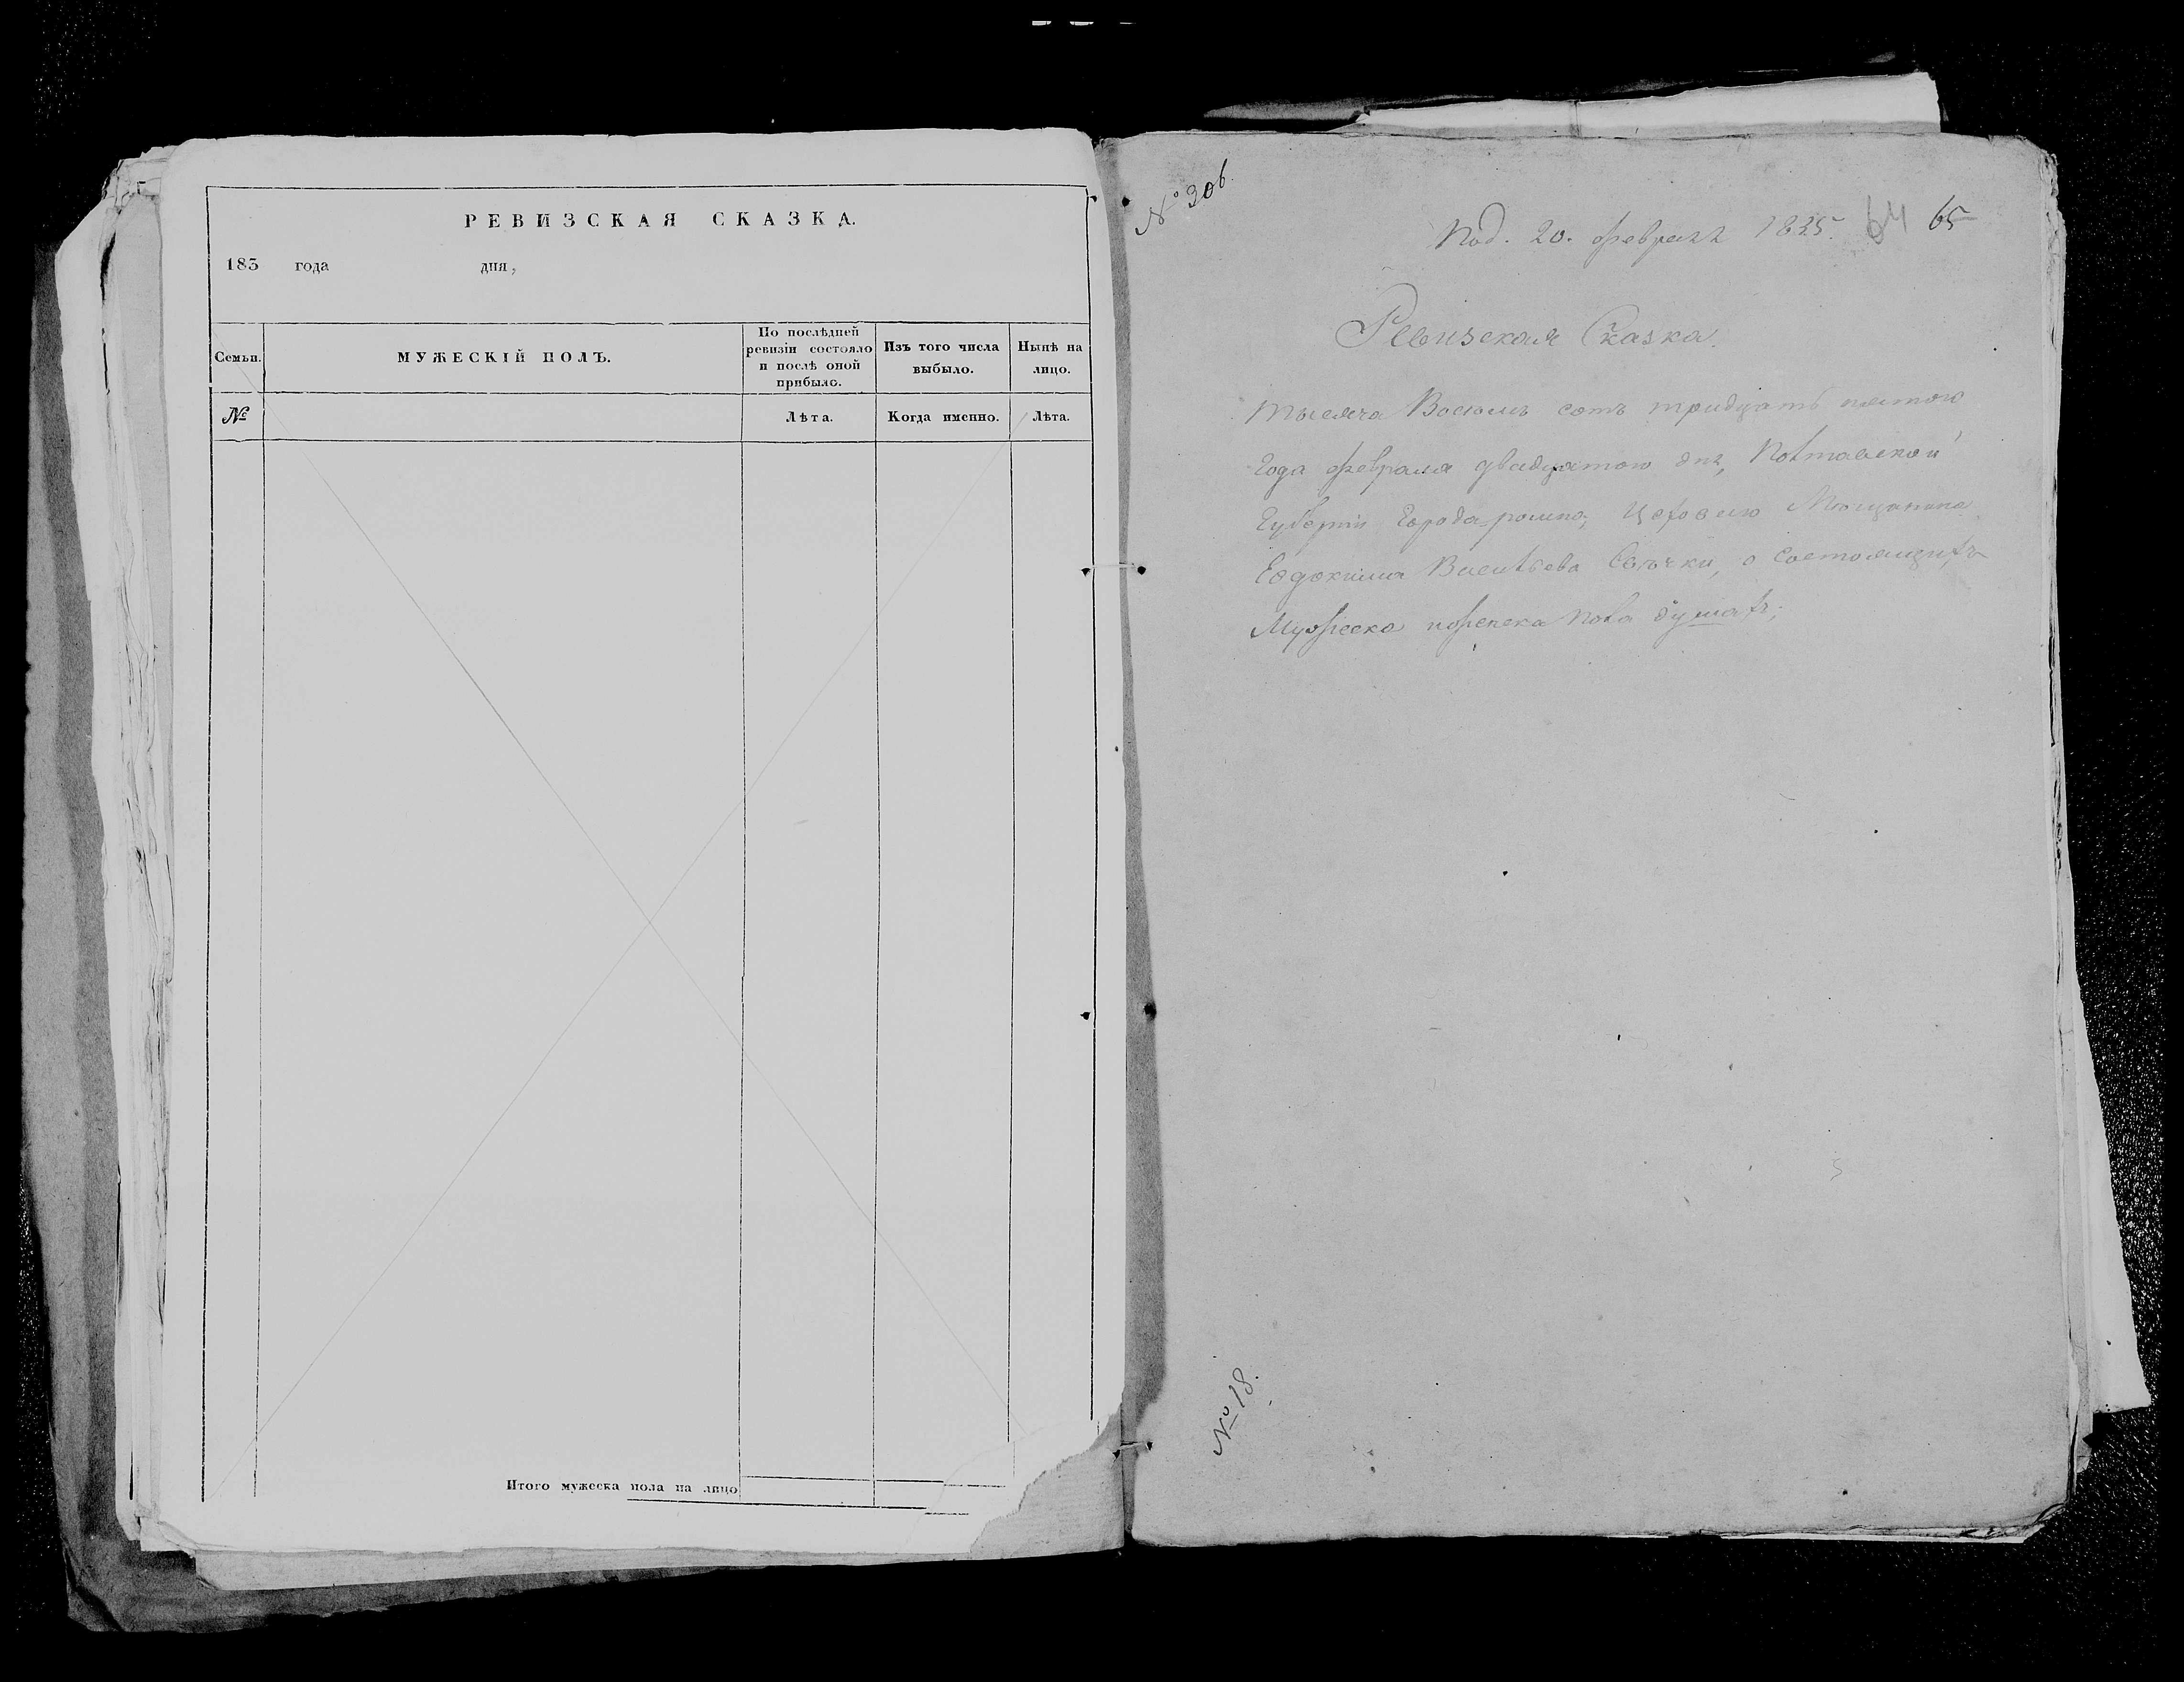 РЕВИЗСКАЯ СКАЗКА.
183 года дня,
Семьи.
МУЖЕСКІЙ ПОЛЪ.
По послѣдней
ревизіи состояло
и послѣ оной
прибыло.
Изъ того числа
выбыло.
Нынѣ на
лицо.
№
Лѣта.
Когда именно.
Лѣта.
Итого мужеска пола на лицо
№ 306.
Под. 20. февраля 1835. 64 65
Ревизская Сказка.
тысяча Восемь сотъ тридцать пятого
Года февраля двадцятого дня, Полтавской
Губернии Города ромна, Мещанина
Евдокима Васильева о Состоящихъ
Мужеска и женска пола душахъ;
№ 18.